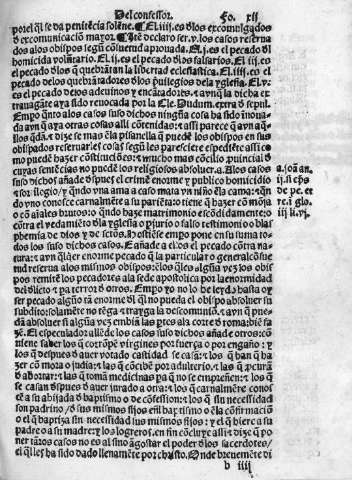 Del confessor. Fo. xij
potel q̃l se da penitẽcia solẽne. ℂ El.iij. es d̃los excomulgados
d̃ excomunicaciõ mayor. ℂ Ité declaro ser.v. los casos reserua
dos alos obispos segũ cõsuetud aprouada. El.j. es el pecado d̃l
homicida volũtario. El.ij. es el pecado d̃los falsarios. El.iij. es
el pecado de los q̃ quebrãtan la libertad eclesiastica. El.iiij. es el
pecado delos q̃ quebrãtadores d̃los preuilegios dela yglesia. El.v.
es el pecado delos adeuinos y encãtadores. ⁊ avnq̃ la dicha ex
trauagãte aya sido reuocada por la Cle. Dudum. extra d̃ sepul.
Empo quãto alos casos suso dichos ninguna cosa ha sido ĩnoua
da avn q̃ aya otras cosas alli cõtenidas: ⁊ assi parece q̃ avn a
llos q̃dã. ⁊ dize se mas ẽla pisanella q̃ puedẽ los obispos en sus
obispados reseruarse casos segũ les pareciere espediẽte assi co
mo puedẽ hazer cõstituciões: ⁊ mucho mas cõcilio ꝓuincial d̃
cuyas sentẽcias no puedẽ los religiosos absoluer. a. Alos casos
suso dichos añade d̃spues el crimẽ enorme y publico homicidio
⁊ so: llegijo / q̃ndo vna ama a caso mata vn niño ẽla cama: q̃n
do vno conosce carnalmẽte a su pariẽta: o tiene q̃ hazer cõ mõja
o cõ aĩales brutos: o q̃ndo haze matrimonio escõdidamente: o
contra el vedamiẽto d̃la yglesia o ꝑjurio o falso testimonio o blas
phemia de dios y de sctõs. Hostiẽse impo ne en su suma to
dos los suso dichos casos. E añade a ellos el pecado cõtra na
tura: ⁊ avn q̃lq̃er enorme pecado q̃ la particular o general cõsue
tud reserua alos mismos obispos: d̃los q̃les algũa vez los obis
pos remitẽ los pecadores ala sede apostolica por la enormidad
del delicto ⁊ pa terror d̃ otros. Empo yo no lo he leydo basta q̃
ser pecado algũo tã enorme d̃l q̃l no pueda el obispo absoluer su
subdito: solamẽte no trayga la descomuniõ. ⁊ avn q̃ pue
dã absoluer si algũa vez embiã las pasos ala corte d̃ roma: biẽ ha
zẽ. El especulador alléde de los casos suso dichos añade otros: cõ
uiene saber los q̃ corrõpẽ virgines por fuerça o por engaño: y
los q̃ despues d̃ auer votado castidad se casã: ⁊ los q̃ han q̃ ha
zer cõ mora o judia: ⁊ las q̃ cõcibẽ por adulterio: ⁊ las q̃ ꝓcurã
d̃ abortar: ⁊ las q̃ tomã medicinas pa q̃ no se empreñen: ⁊ los q̃
se casan d̃spues d̃ auer jurado a otra: ⁊ los q̃ carnalmẽte conoscẽ
a su ahijada d̃ baptismo o de cõfession: ⁊ los q̃ sin necessidad
son padrinos d̃ sus mismos fijos en̄l baptismo o ẽla cõfirmaciõ
o el q̃ baptiza sin necessidad sus mismos fijos: y el q̃ hiere a su
padre o a su madre: ⁊ los logreros. en fin cõcluye alli ⁊ dize q̃ po
ner tãtos casos no es al sino agostar el poder d̃los sacerdotes /
el q̃l les ha sido dado llenamẽte por christo. Onde breuemẽte di
b iiij
a. joã. an.
j. ⁊ ij. eps
de pe. et
re. i glo.
iij li. vj.